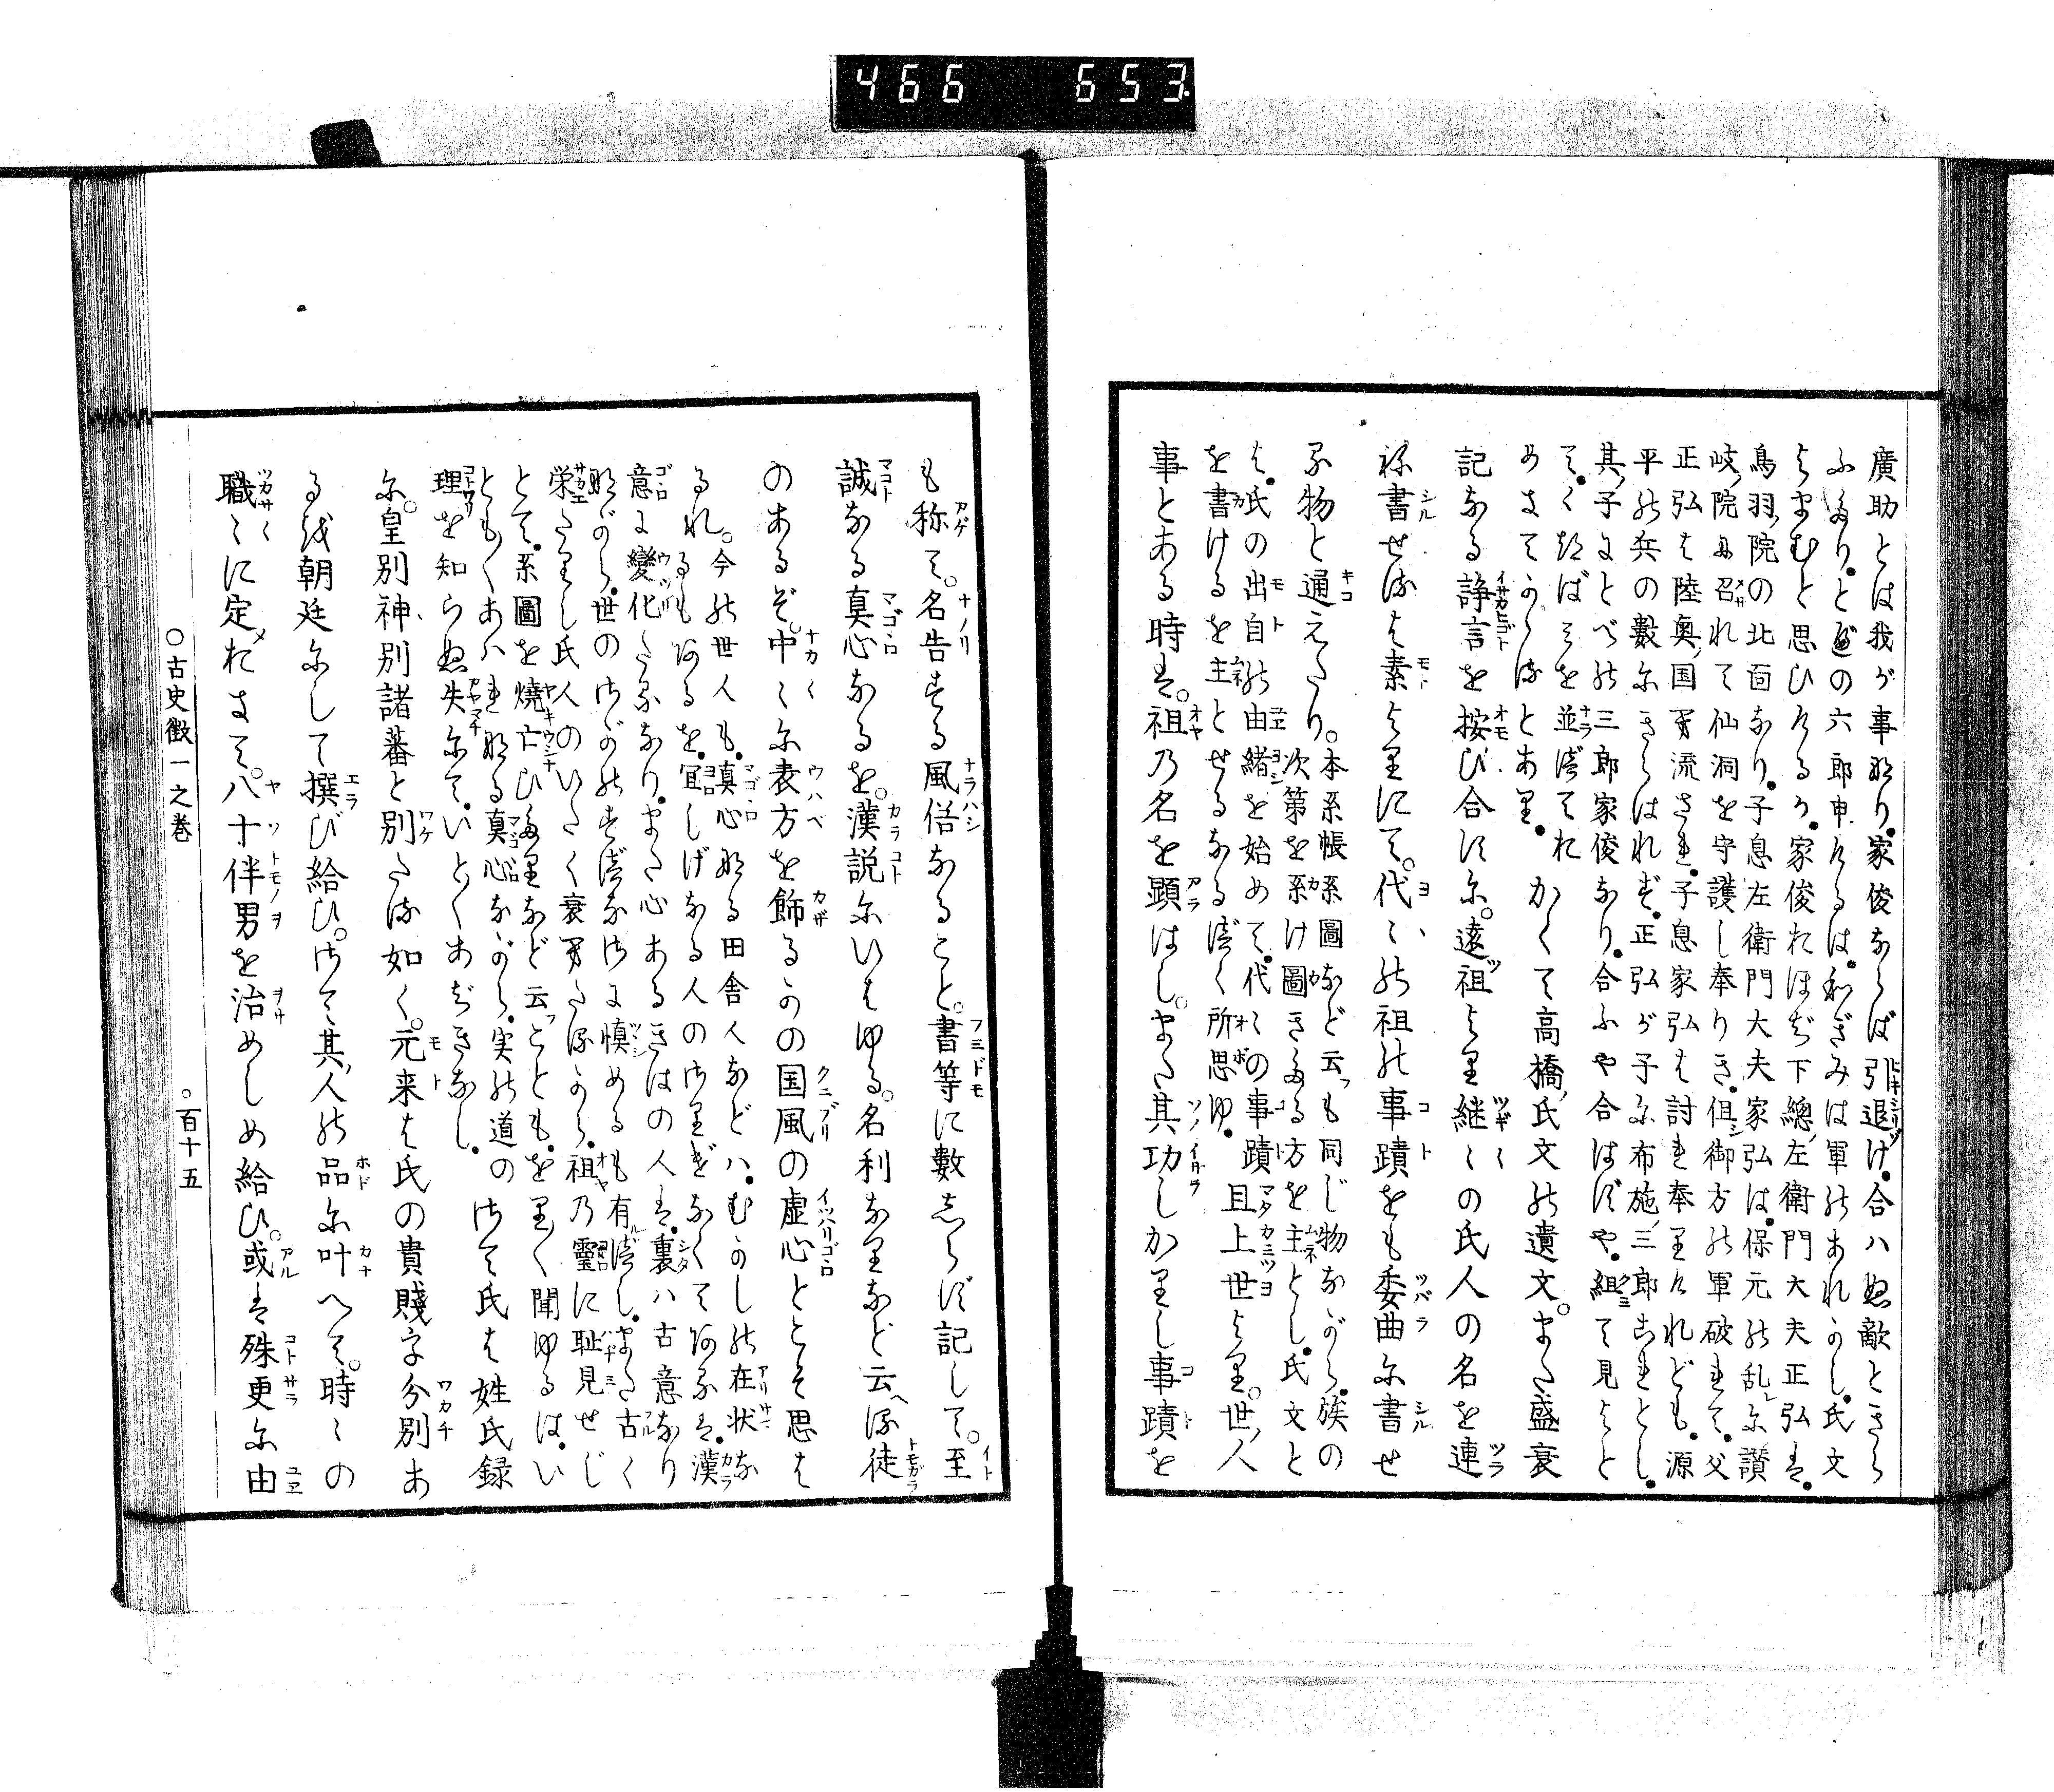 466 653
廣助とは我が事なり。家俊ならば引退け。合ハぬ敵ときら
ふなり。と進の六郎申けるは。和ぎみは軍のあれかし。氏文
よまむと思ひけるか。家俊れほぢ下總、左衛門大夫正弘は。
鳥羽、院の北面なり。子息左衛門大夫家弘は。保元の乱に讃
岐、院に召れて仙洞を守護し奉りき。但御方の軍破れて。父
正弘は陸奥、国へ流され。子息家弘は討れ奉りけれども。源
平の兵の數にきらはれず。正弘が子に布施、三郎これとし。
其、子にとべの三郎家俊なり。合ふや合はずや。組て見よと
て。くればこまを並べてれ
めきてかゝるとあり。かくて高橋、氏文の遺文。また盛衰
記なる諍言を按び合すに。遠祖より継〻の氏人の名を連
ね書せるは素よりにて。代〻の祖の事蹟をも委曲に書せ
る物と通えたり。本系帳系圖など云も同じ物ながら。族の
次第を系け圖きたる方を主とし。氏文と
は。氏の出自の由緒を始めて。代〻の事蹟
を書けるを主とせるなるべく所思ゆ。且上世より。世、人
事とある時は。祖乃名を顕はし。また其功しかりし事蹟を
も称て。名告する風俗なること。書等に數しらず記して。至
誠なる真心なるを。漢説にいはゆる。名利なりなど云へる徒
のあるぞ。中〻に表方を飾るかの国風の虚心とこそ思は
るれ。今の世人も。真心なる田舎人などハ。むかしの在状な
るも有るを。宜しげなる人のさりげなくてあるは。漢
意に變化たるなり。また心あるきはの人は。裏ハ古意なり
ながら。世のさがのすべなさに慎めるも有べし。また古く
栄えたりし氏人のいたく衰へたるから。祖乃靈に耻見せじ
とて。系圖を燒亡ひたりなど云ことも。をりく聞ゆるは。い
ともくあハれなる真心ながら。実の道の
理を知らぬ失にて。いとくあぢきなし。さて氏は姓氏録
に。皇別神、別諸蕃と別たる如く。元来は氏の貴賤き分別あ
るを朝廷にして撰び給ひ。さて其、人の品に叶へて。時〻の
職〻に定められまて。八十伴男を治めしめ給ひ。或は殊更に由
○古史徴一之巻
○百十五